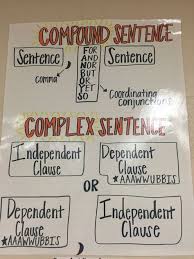 COMPOUND SENTENCE
Sentence
FOR
AND
NOR
BUT
OR
YET
SO
Sentence
comma
Coordinating
conjunctions
COMPLEX SENTENCE
Independent
Clause
Dependent
Clause
*AAAWWUBBIS
OR
Dependent
Clause
*AAAWWUBBIS
Independent
Clause